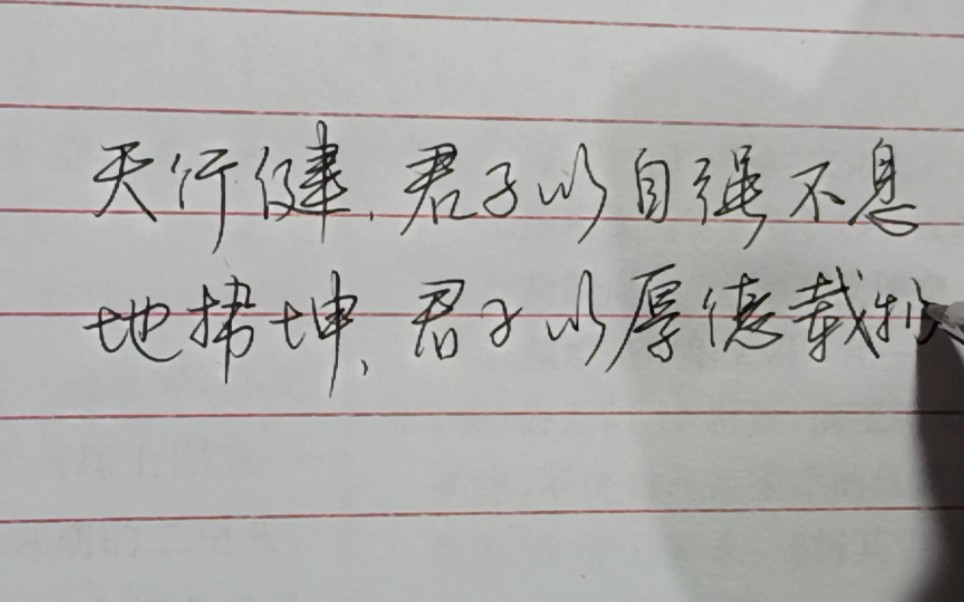 天行健,君子以自强不息
地势坤,君子以厚德载物